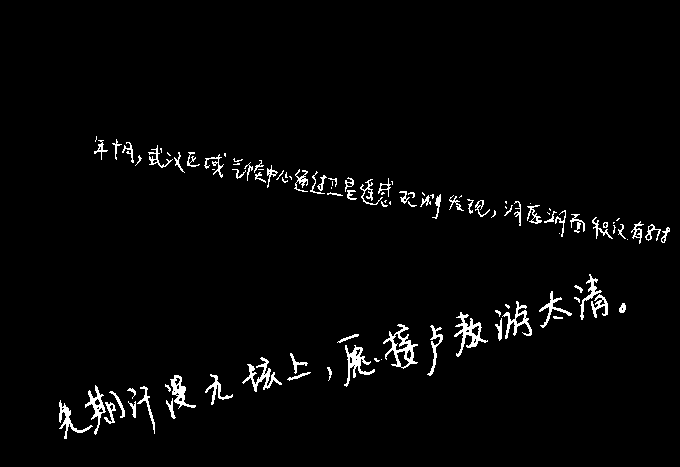 年十月，武汉区域气候中心通过卫星遥感观测发现，洞庭湖面积仅有878
先期汗漫九垓上，愿接卢敖游太清。